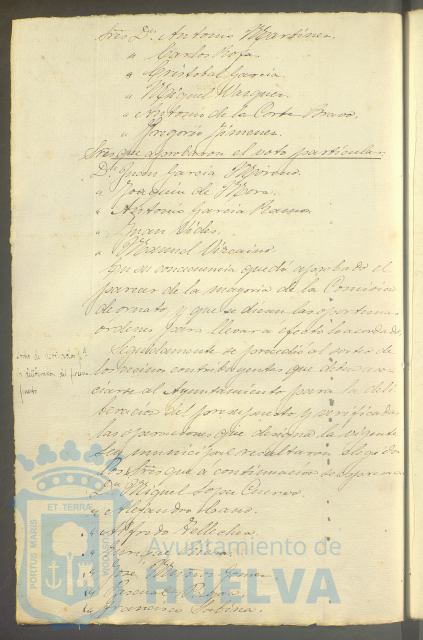 Sres Dn. Antonio Martinez.
" Carlos Rofa.
" Cristobal Garcia.
" Miguel Vazquez.
" Antonio de la Corte Bravo.
" Gregorio Jimenez.
Sres que aprobaron el voto particular.
Dn. Juan Garcia
" Joaquin de Mora.
" Antonio Garcia Ramos.
" Juan
" Manuel Vizcaino
Que en consecuencia quedó aprobado el
parecer de la mayoria de la Comision
de ornato y que se dicten las oportunas
ordenes para llevar a efecto lo acordado.
Seguidamente se procedió al sorteo de
los mismos contribuyentes que deben aso-
ciarse al Ayuntamiento para la deli-
beracion del presupuesto y verificadas
las operaciones que designa la vigente
Ley municipal resultaron elegidos
los Sres que a continuacion se expresan
Dn. Miguel Lopez Cuervo.
" Alejandro
" Alfredo
" Enrique
" Jose Gomez
" Pascual
" Francisco Sabina.
Sorteo de asociados pa
la deliberacion del presu-
puesto
ET TERRÆ
PORTUS MARIS
Ayuntamiento de
HUELVA